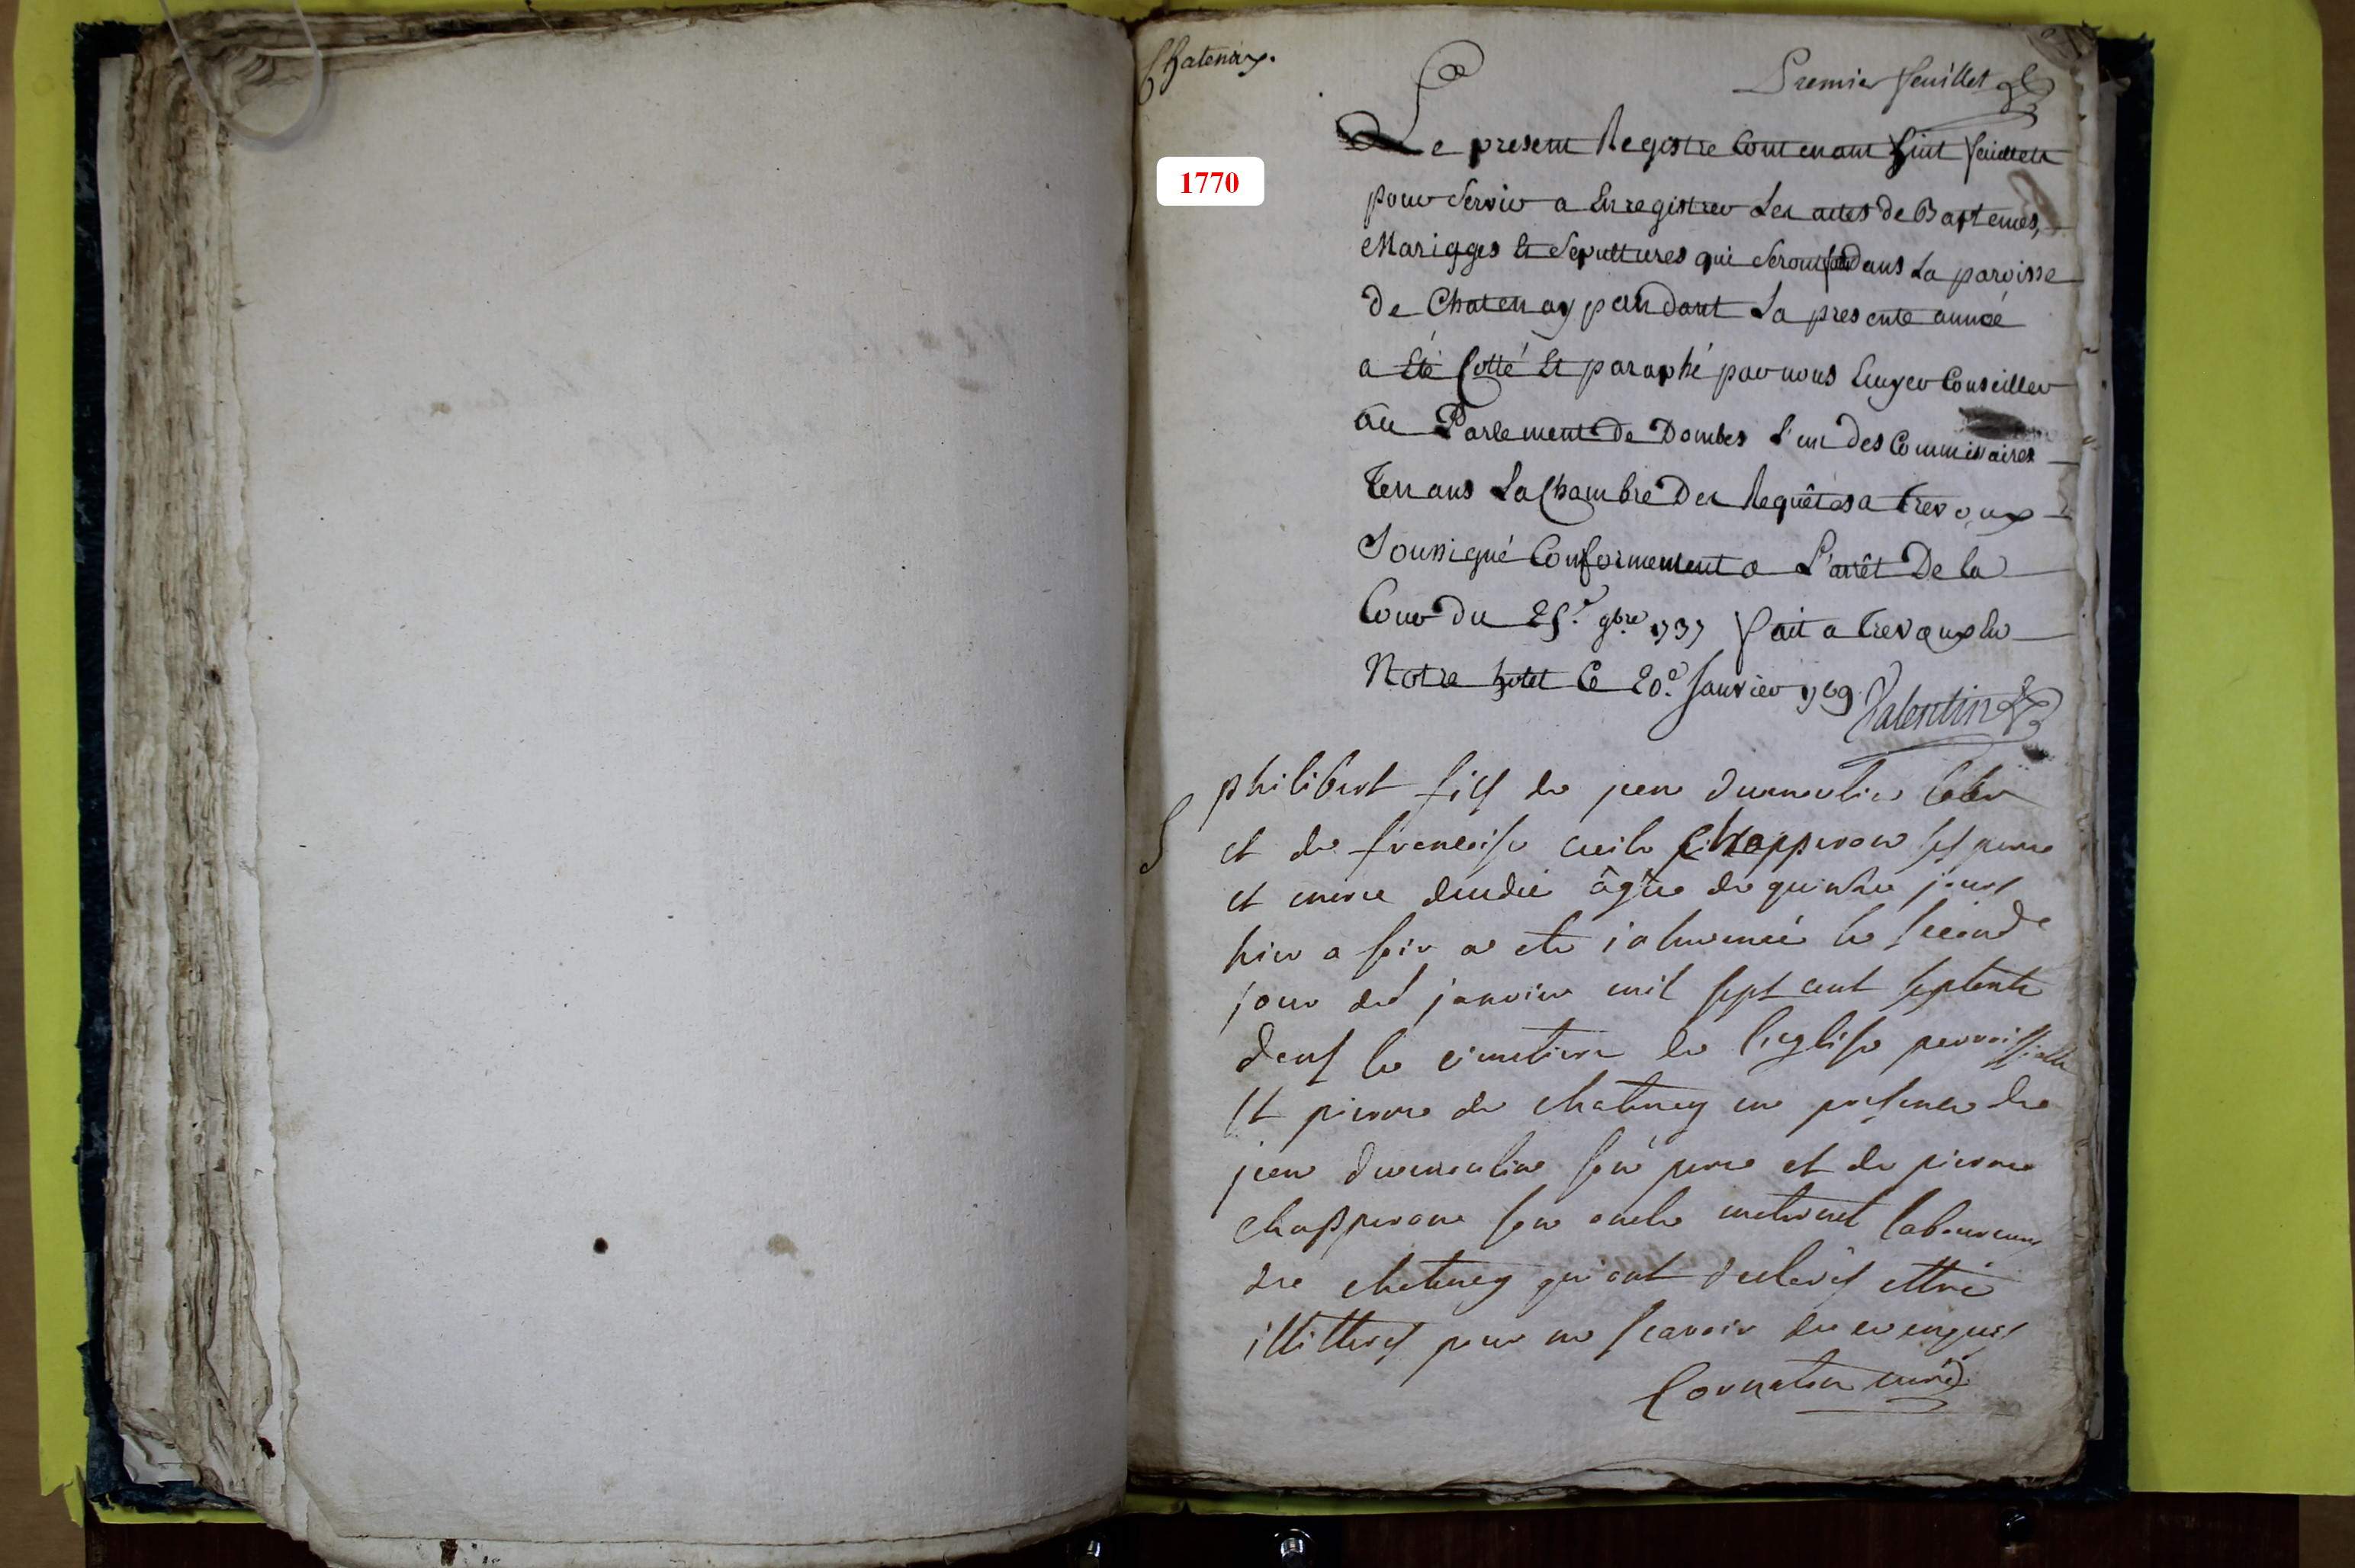 Chatenay.
Premier feuillet
1770
Le present Registre Contenant huit feuillets
pour Servir a Enregistrer Les actes de Baptemes,
Mariages Et Sepultures qui Seront fait Dans La paroisse
De Chatenay pendant La presente année
a Eté Cotté Et paraphé par nous Ecuyer Conseiller
au Parlement De Dombes L'un Des Commissaires
Tenans La Chambre Des Requêtes a Trevoux
Soussigné Conformement a L'arrêt De la
Cour Du 25.e 9bre 1737 fait a Trevoux En
Notre hotel Ce 20.e Janvier 1769 Valentin
S
philibert fils de jean dumoulin labr
et de francoise chapperon ses pere
et mere decedé âgée de quinze jours
hier a soir a ete inhumeé le second
jour de janvier mil sept cent septente
dans le cimetiere de l'eglise parroissialle
St pierre de chatenay en presence de
jean dumoulin son pere et de pierre
chapperon son oncle laboureurs
de chatenay qui ont declarés etre
illitterés pour ne scavoir de ce enquis
Cornaton curé